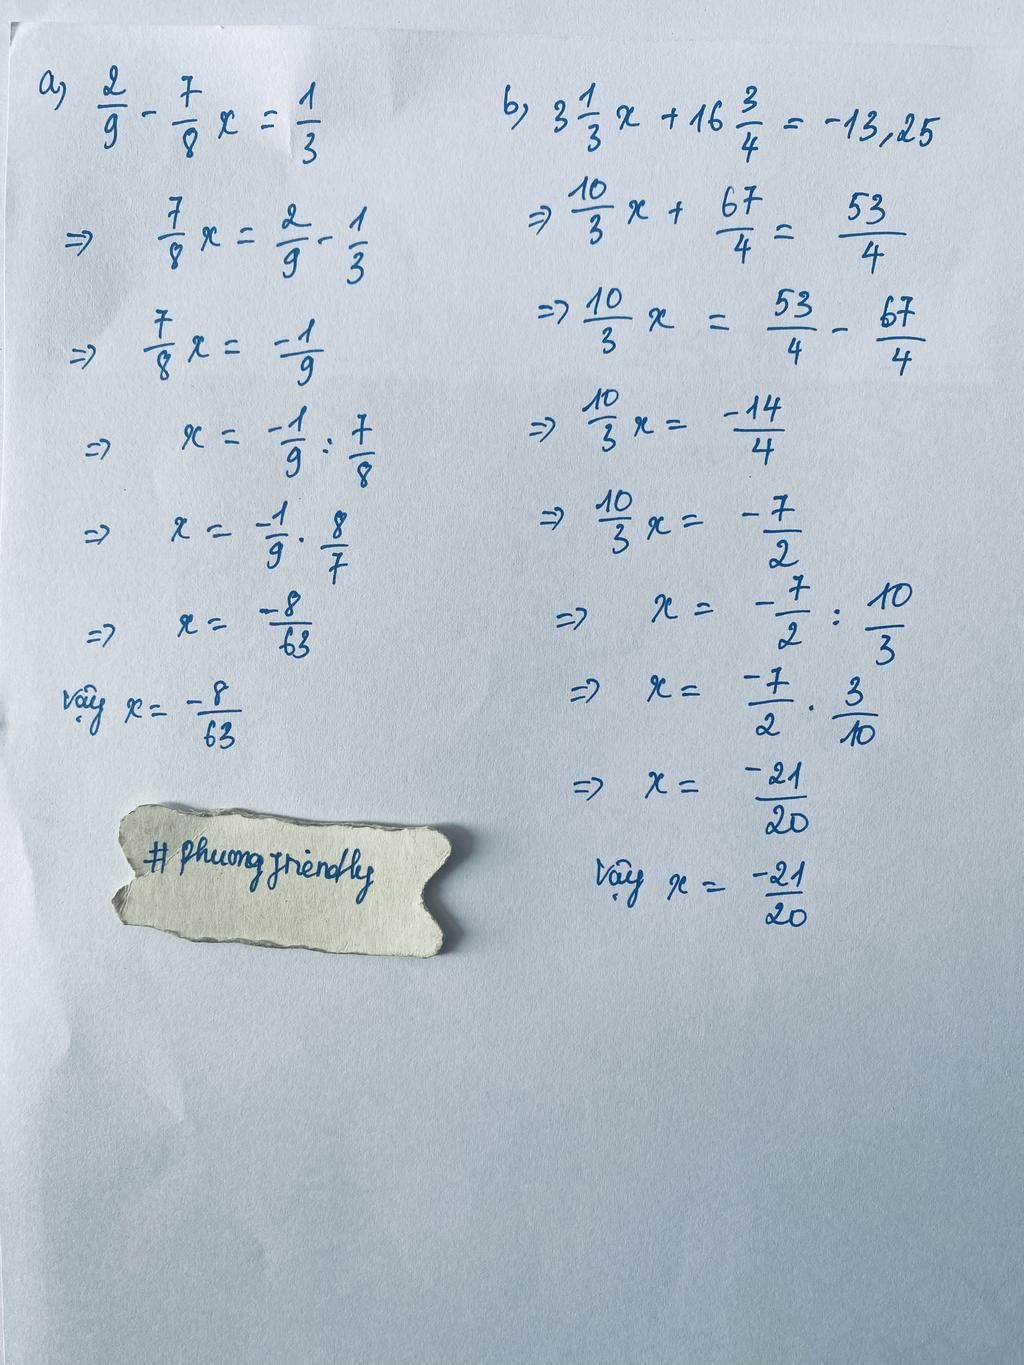 a) 2/9 - 7/8 x = 1/3
=> 7/8 x = 2/9 - 1/3
=> 7/8 x = -1/9
=> x = -1/9 : 7/8
=> x = -1/9 . 8/7
=> x = -8/63
Vậy x = -8/63
# phuongfriendly
b) 3 1/3 x + 16 3/4 = -13,25
=> 10/3 x + 67/4 = 53/4
=> 10/3 x = 53/4 - 67/4
=> 10/3 x = -14/4
=> 10/3 x = -7/2
=> x = -7/2 : 10/3
=> x = -7/2 . 3/10
=> x = -21/20
Vậy x = -21/20